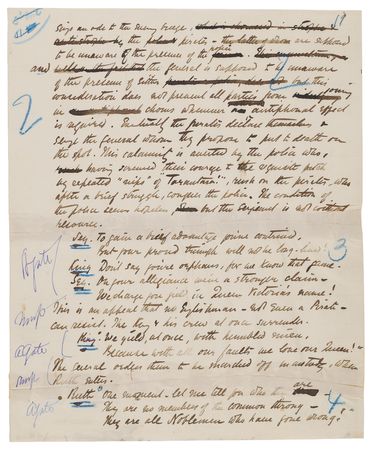 sings an ode to the Divine
the pirates – the latter are supposed
to be unaware of the presence of the police
and the General is supposed to be unaware
of the presence of either but this
consideration does not prevent all parties from joining
in chorus whenever an antiphonal effect
is required. Eventually the pirates
seize the General whom they propose to put to death on
the spot. This calamity is averted by the police who,
having screwed their courage to the requisite pitch
by repeated "sips" of "Tarantara", rush on the pirates, who
after a brief struggle, conquer the police. The condition of
the police seems hopeless but the Sergeant is not without
resource.
2
Serg. To gain a brief advantage you've contrived,
But your proud triumph will not be long-lived!
3
King Don't say you're orphans, for we know that game.
Serg. On your allegiance we've a stronger claim
We charge you yield, in Queen Victoria's name!
This is an appeal that no Englishman – not even a Pirate –
can resist. The King & his crew at once surrender.
King: We yield at once, with humbled mien,
Because with all our faults, we love our Queen!"
The General orders them to be marched off in custody, when
Ruth enters.
"Ruth" One moment. let me tell you who they are
They are no members of the common throng –
they are all Noblemen who have gone wrong."
4